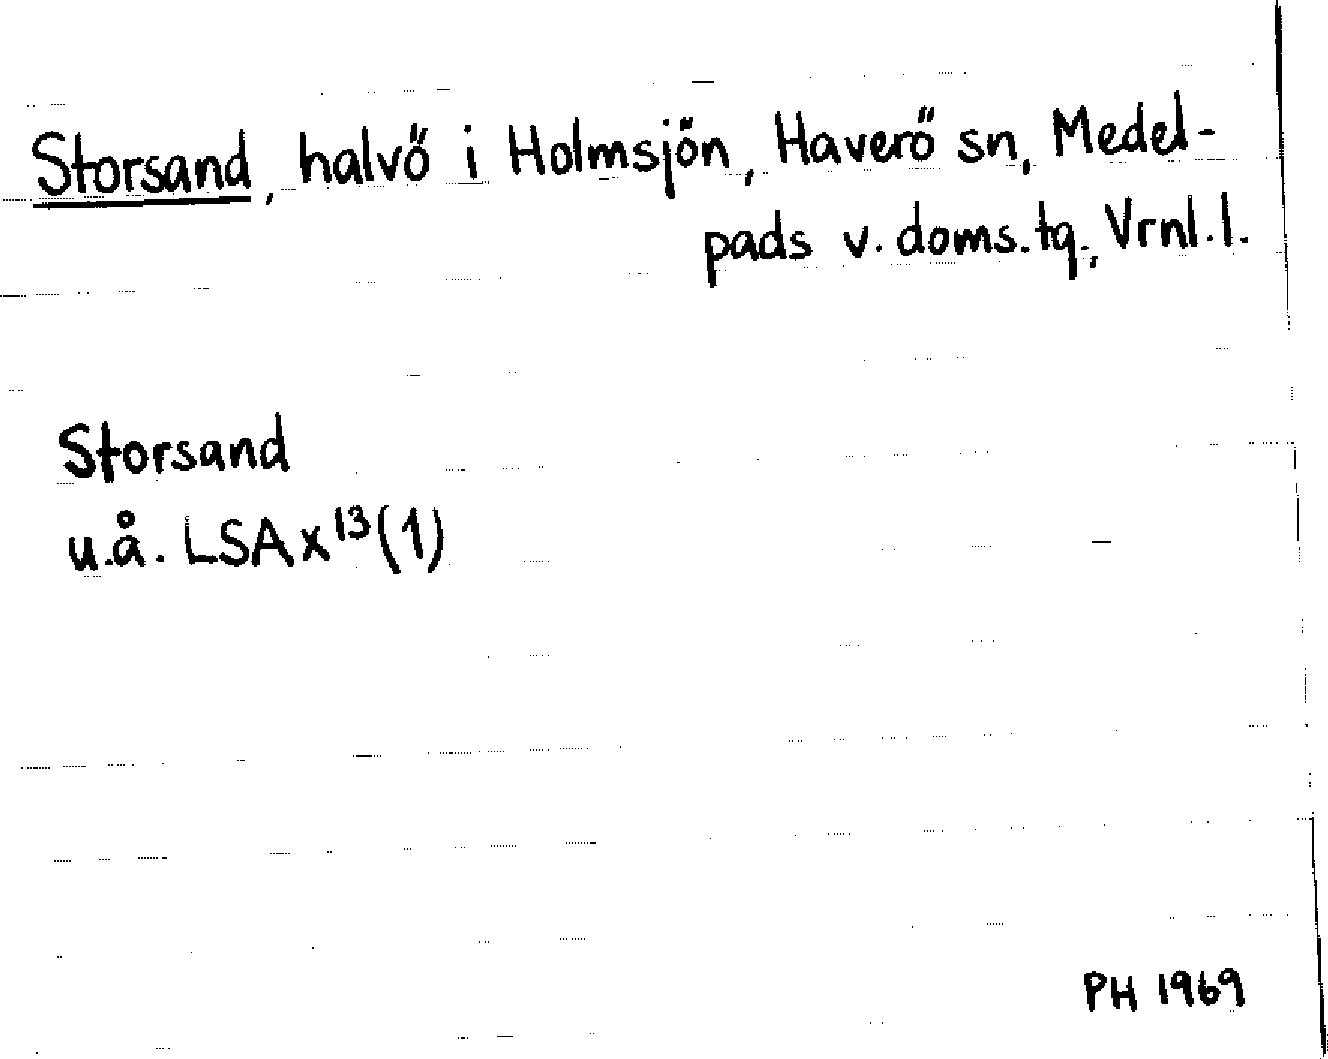 Storsand, halvö i Holmsjön, Haverö sn, Medel-
pads v. doms.tg., Vrnl.l.
Storsand
u.å. LSA x¹³(1)
PH 1969